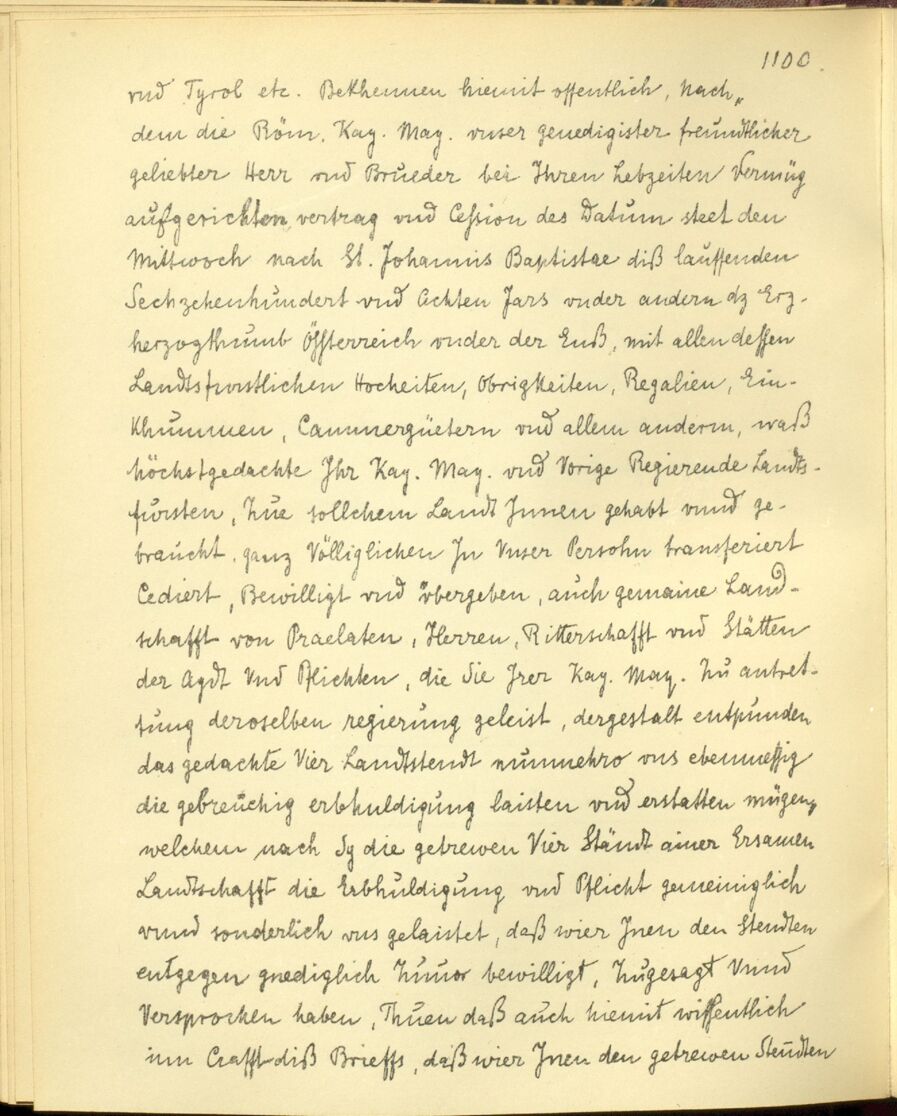 1100.
vnd Tyrol etc. Bekhennen hiemit offentlich, Nach„
dem die Röm. Kay. May. vnser genedigister freundtlicher
geliebter Herr vnd Brueder bei Ihren Lebzeiten Vermüg
aufgerichten vertrag vnd Cession des Datum steet den
Mittwoch nach St. Johannis Baptistae diß lauffenden
Sechzehenhundert vnd Achten Jars vnder andern dz Erz-
herzogthumb Össterreich vnder der Enß, mit allen dessen
Landtsfurstlichen Hocheiten, Obrigkeiten, Regalien, Ein-
khummen, Cammergüetern vnd allem anderm, waß
höchstgedachte Ihr Kay. May. vnd Vorige Regierende Landts-
fürsten, Zue sollchem Landt Innen gehabt vnnd ge-
braucht, ganz Völliglichen In Vnser Persohn transferiert
Cediert, Bewilligt vnd übergeben, auch gemaine Land-
schafft von Praelaten, Herren, Ritterschafft vnd Stätten
der Aydt Vnd Pflichten, die Sie Irer Kay. May. Zu antret-
tung deroselben regierung geleist, dergestalt entpunden
das gedachte Vier Landtstendt nunmehro vns ebenmessig
die gebreuchig erbhuldigung laisten vnd erstatten mügen,
welchem nach Sy die getrewen Vier Ständt ainer Ersamen
Landtschafft die Erbhuldigung vnd Pflicht gemeiniglich
vnnd sonderlich vns gelaistet, daß wier Inen den Stendten
entgegen gnediglich Zuuor bewilligt, Zugesagt Vnnd
Versprochen haben, Thuen daß auch hiemit wissentlich
inn Crafft diß Brieffs, daß wier Inen den getrewen Stendten